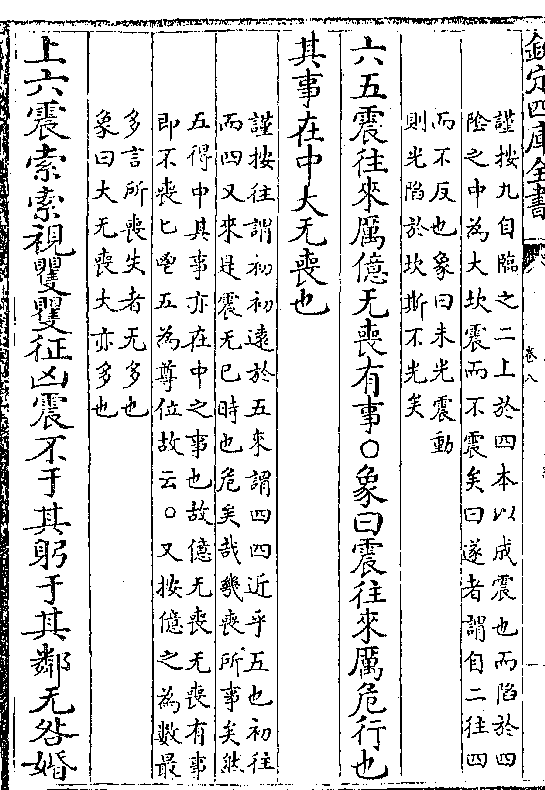 欽定四庫全書
卷八
謹按九自臨之二上於四本以成震也而陷於四
陰之中為大坎震而不震矣曰遂者謂自二往四
而不反也象曰未光震動
則光陷於坎斯不光矣
六五震往來厲億无喪有事○象曰震往來厲危行也
其事在中大无喪也
謹按往謂初初遠於五來謂四四近乎五也初往
而四又來是震无已時也危矣哉幾喪所事矣然
五得中其事亦在中之事也故億无喪无喪有事
即不喪匕鬯五為尊位故云○又按億之為數最
多言所喪失者无多也
象曰大无喪大亦多也
上六震索索視矍矍征凶震不于其躬于其鄰无咎婚